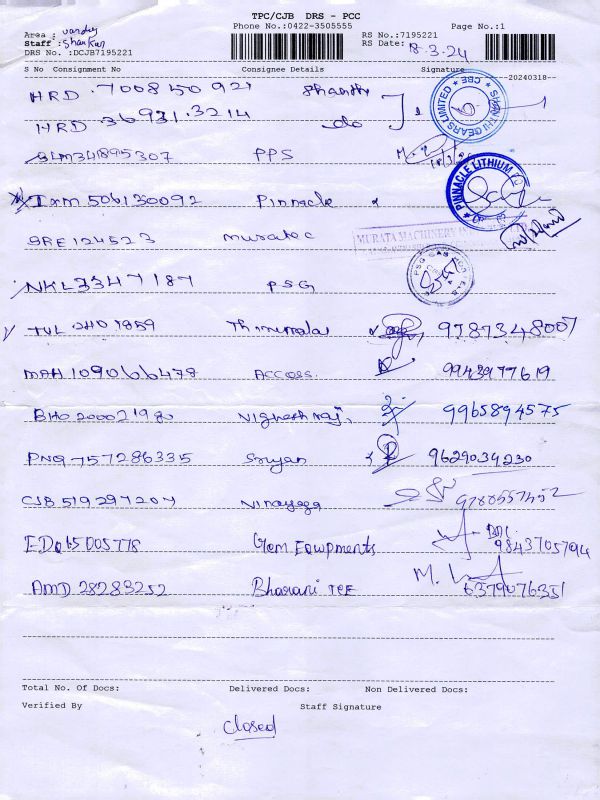 TPC/CJB DRS - PCC
Phone No.:0422-3505555 Page No.:1
Area : vandy
Staff : Shankar
RS No.:7195221
RS Date: 18-3-24
DRS No. :DCJB7195221
S No Consignment No Consignee Details Signature --20240318--
HRD 700850921 Shanthi
HRD 36931.3214 do
SHANTHI GEARS LIMITED * CBE *
SLM341895307 PPS
IXM 506130092 Pinnacle
PINNACLE LITHIUM
GRE124523 Muratec
MURATA MACHINERY
NKL3347187 PSG
TVL 2H0 1859 Thirumalai 9787348007
MAH 109066478 Access. 9943977619
BHO 200021980 Vignesh raj, 9965894575
PNQ 757286335 Sryan 9629034230
CJB 519297207 Vinayaga
EDQ65005778 Gem Equipments 9843705794
AMD 28283252 Bharani TEE 6379076351
Total No. Of Docs: Delivered Docs: Non Delivered Docs:
Verified By Staff Signature
closed